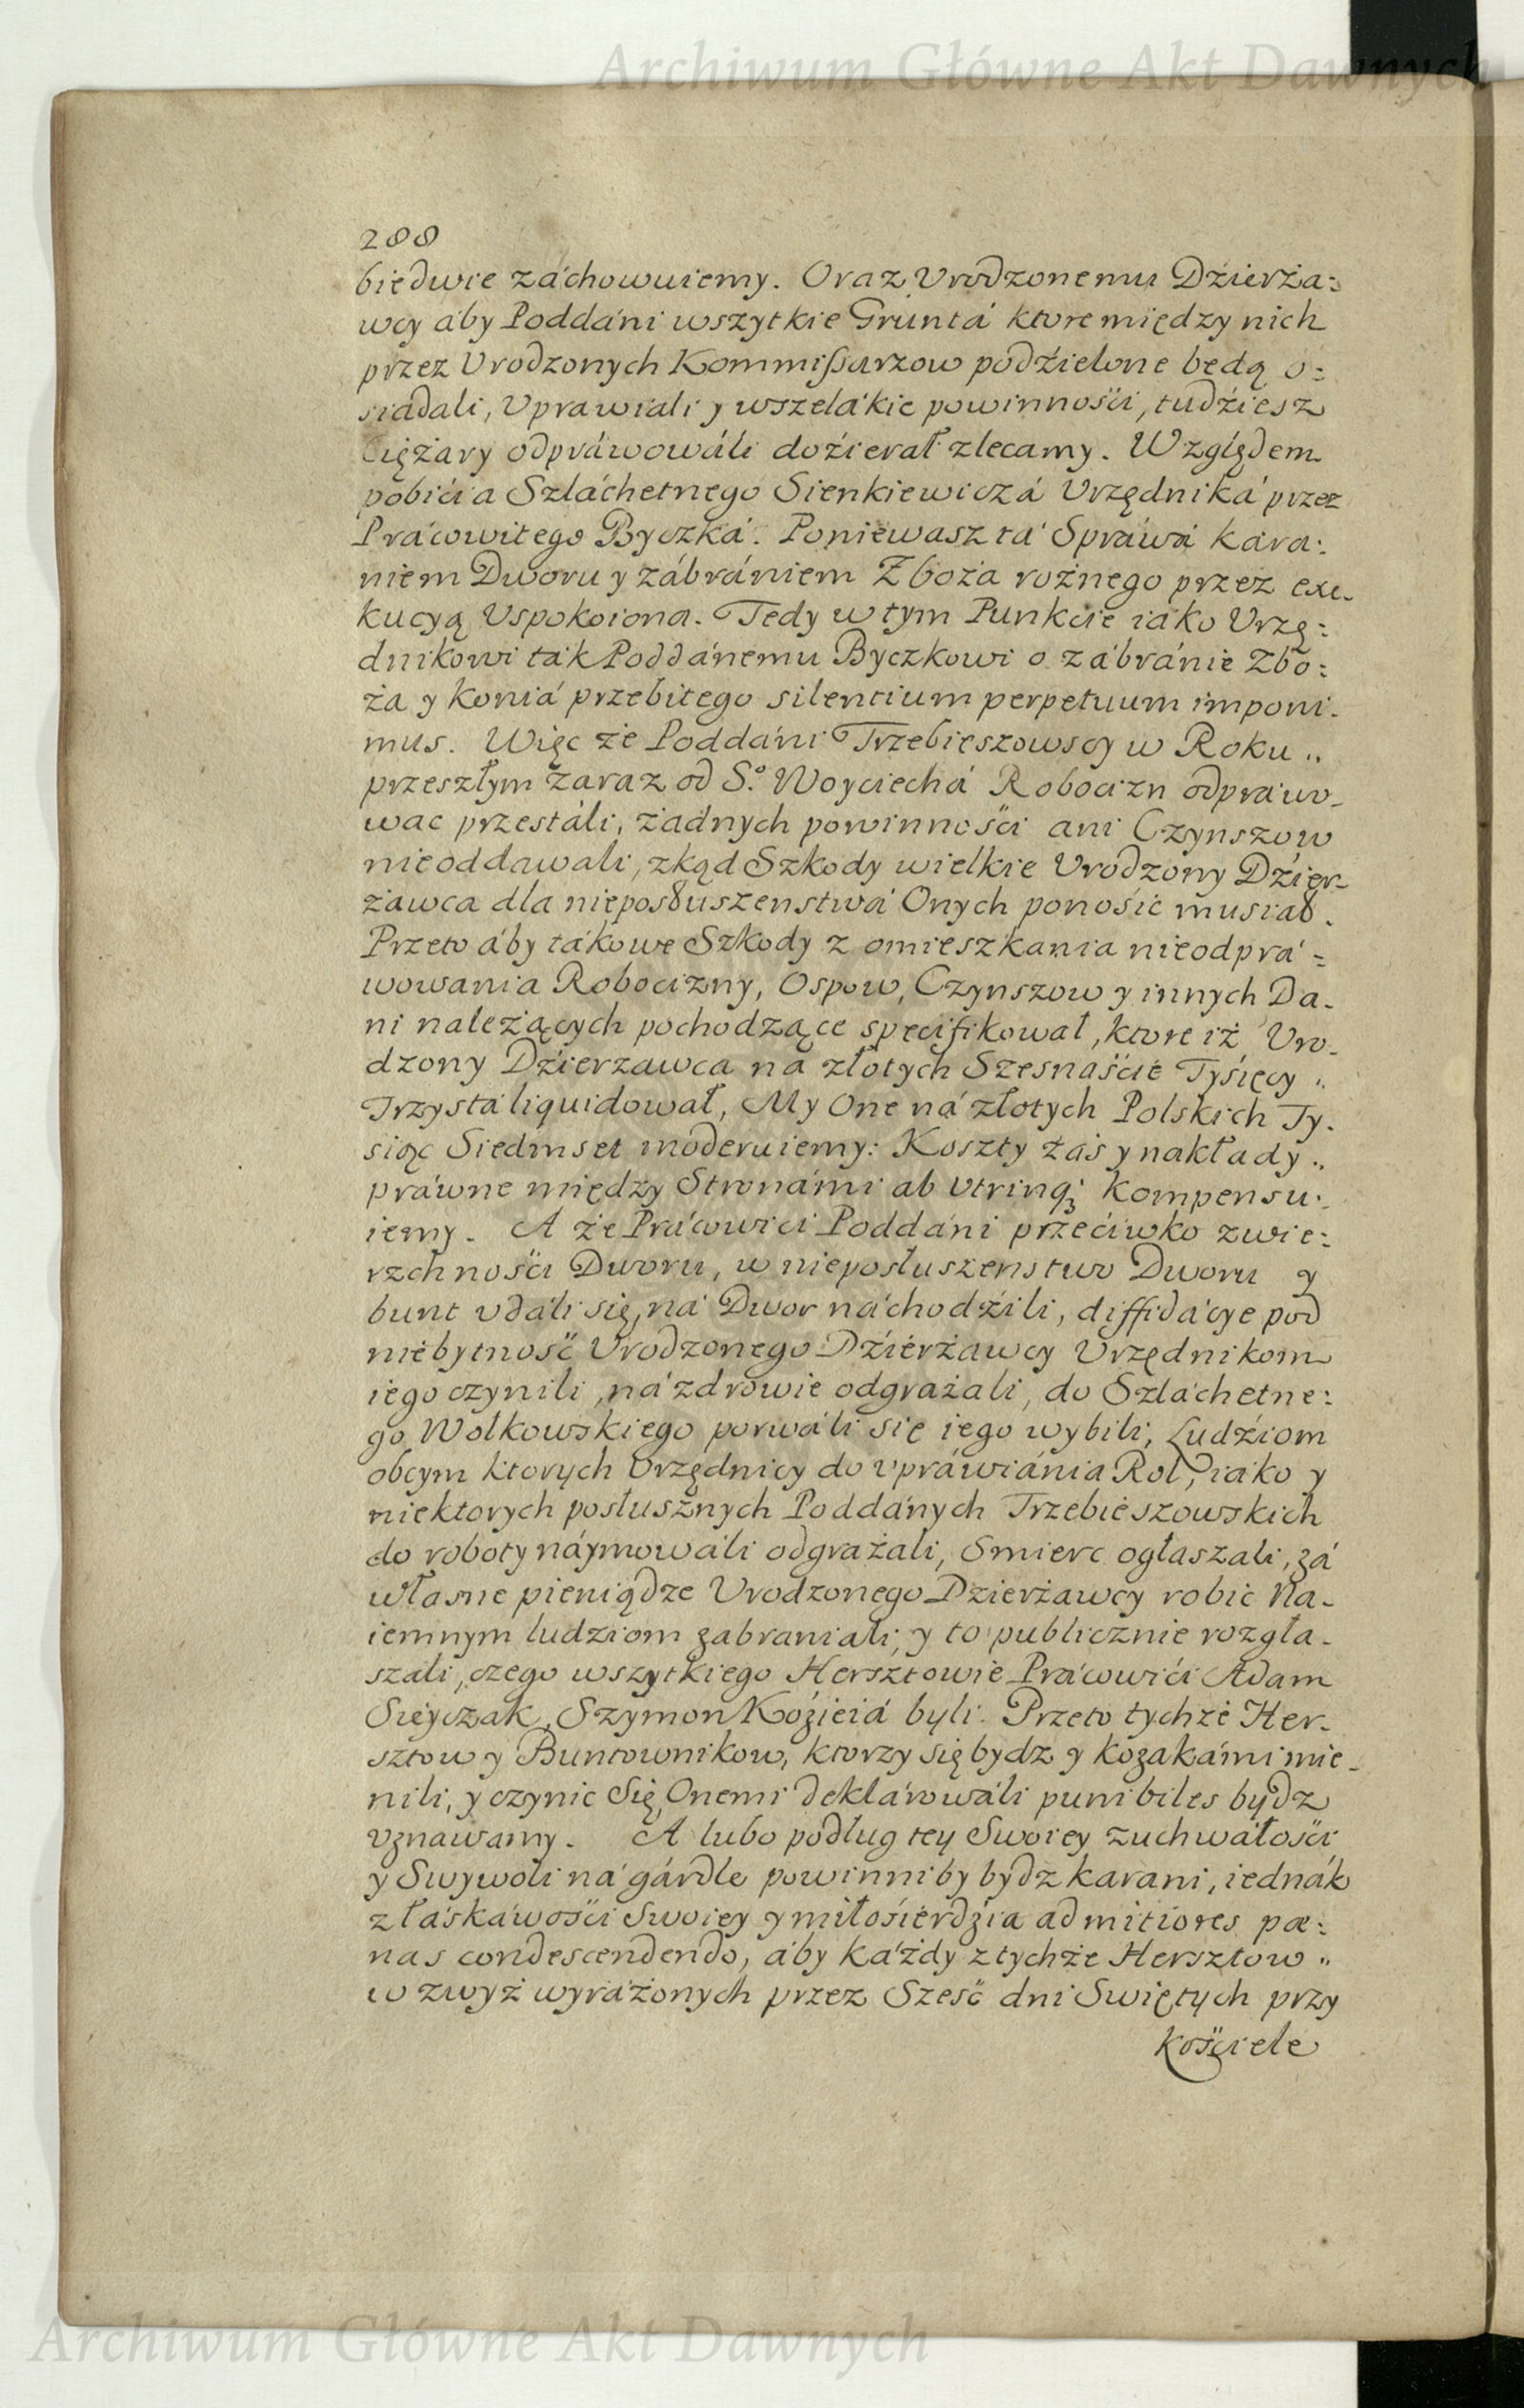 Archiwum Główne Akt Dawnych
288
biedwie záchowuiemy. Oraz Vrodzonemu Dźierża:
wcy áby Poddáni wszytkie Gruntá ktore między nich
przez Vrodzonych Kommißarzow podźielone będą o:
siadali, Vprawiali y wszelákie powinnośći, tudźiesz
Ciężary odpráwowáli doźierał zlecamy. Względem
pobićia Szláchetnego Sienkiewiczá Vrzędniká przez
Prácowitego Byczká. Poniewasz tá Spráwá kara:
niem Dworu y zábrániem Zboża rożnego przez exe-
kucyą Vspokoiona. Tedy w tym Punkćie iáko Vrzę:
dnikowi ták Poddánemu Byczkowi o zábránie Zbo:
ża y Koniá przebitego silentium perpetuum imponi-
mus. Więc że Poddáni Trzebieszowscy w Roku „
przeszłym zaraz od S.º Woyciechá Robocizn odprawo-
wac przestáli, żadnych powinnośći ani Czynszow
nieoddawali, zkąd Szkody wielkie Vrodzony Dźier-
żawca dla nieposłuszenstwá Onych ponośić musiał.
Przeto áby tákowe Szkody z omieszkania nieodprá=
wowania Robocizny, Ospow, Czynszow y innych Da-
ni należących pochodzące specifikował, ktore iż Vro-
dzony Dźierzawca na złotych Szesnaśćie Tyśięcy „
Trzystá liquidował, My One ná złotych Polskich Ty-
siąc Siedmset moderuiemy: Koszty zaś y nakłady „
práwne między Stronámi ab vtrinq; kompensu:
iemy. A że Prácowići Poddáni przećiwko zwie:
rzchnośći Dworu, w nieposłuszenstwo Dworu y
bunt vdáli się, ná Dwor náchodźili, diffidácye pod
niebytność Vrodzonego Dźierżawcy Vrzędnikom
iego czynili, ná zdrowie odgrażali, do Szláchetne:
go Wołkowskiego porwáli się iego wybili, Ludźiom
obcym ktorych Vrzędnicy do vpráwiánia Rol, iáko y
niektorych posłusznych Poddánych Trzebieszowskich
do roboty náymowáli odgrażali, Smierc ogłaszali, zá
własne pieniądze Vrodzonego Dzierżawcy robic Na-
iemnym ludziom zabraniali, y to publicznie rozgła-
szali, czego wszytkiego Hersztowie Prácowići Adam
Sieyczak, Szymon Koźieiá byli. Przeto tychże Her-
sztow y Buntownikow, ktorzy się bydz y kozakámi mie-
nili, y czynic Się Onemi deklárowáli punibiles bydz
vznawamy. A lubo podług tey Swoiey zuchwáłośći
y Swywoli ná gárdle powinniby bydz karani, iednák
z łáskáwośći Swoiey y miłośierdźia ad mitiores pæ:
nas condescendendo, áby káżdy z tychże Hersztow „
w zwyż wyráżonych przez Sześć dni Swiętych przy
kośćiele
Archiwum Główne Akt Dawnych